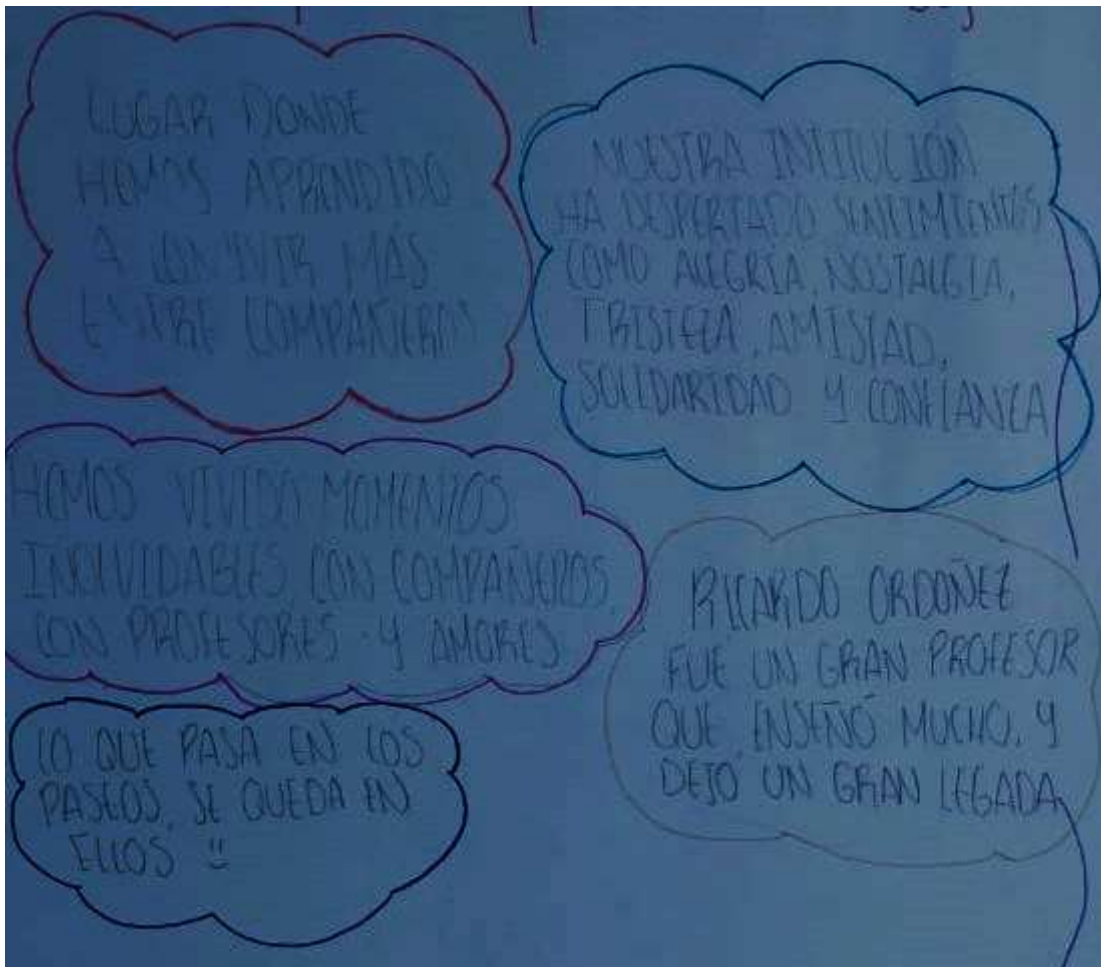 LUGAR DONDE
HEMOS APRENDIDO
A CONVIVIR MÁS
ENTRE COMPAÑEROS
NUESTRA INTITUCIÓN
HA DESPERTADO SENTIMIENTOS
COMO ALEGRÍA, NOSTALGIA,
TRISTEZA, AMISTAD,
SOLIDARIDAD Y CONFIANZA
HEMOS VIVIDO MOMENTOS
INOLVIDABLES CON COMPAÑEROS,
CON PROFESORES Y AMORES
RICARDO ORDOÑEZ
FUE UN GRAN PROFESOR
QUE ENSEÑÓ MUCHO, Y
DEJÓ UN GRAN LEGADA
LO QUE PASA EN LOS
PASEOS, SE QUEDA EN
ELLOS